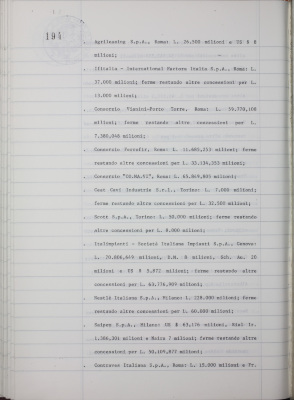 194
. Agrileasing S.p.A., Roma: L. 26.500 milioni e US $ 8
milioni;
. Ifitalia - International Factors Italia S.p.A., Roma: L.
37.000 milioni; ferme restando altre concessioni per L.
13.000 milioni;
. Consorzio Vianini-Porto Torre, Roma: L. 39.770,108
milioni; ferme restando altre concessioni per L.
7.380,046 milioni;
. Consorzio Ferrofir, Roma: L. 11.685,253 milioni; ferme
restando altre concessioni per L. 33.134,353 milioni;
. Consorzio "CO.MA.VI", Roma: L. 64.869,803 milioni;
. Coat Dori Industrie S.r.l., Torino: L. 7.000 milioni;
ferme restando altre concessioni per L. 32.500 milioni;
. Scott S.p.A., Torino: L. 50.000 milioni; ferme restando
altre concessioni per L. 8.000 milioni;
. Italimpianti - Società Italiana Impianti S.p.A., Genova:
L. 70.886,649 milioni, D.M. 8 milioni, Sch. au. 20
milioni e US $ 5,872 milioni; ferme restando altre
concessioni per L. 65.776,909 milioni;
. Nestlé Italiana S.p.A., Milano: L. 228.000 milioni; ferme
restando altre concessioni per L. 60.000 milioni;
. Saipem S.p.A., Milano: US $ 63,176 milioni, Rial Ir.
1.386,301 milioni e Naira 7 milioni; ferme restando altre
concessioni per L. 90.109,877 milioni;
. Contraves Italiana S.p.A., Roma: L. 15.000 milioni e Fr.